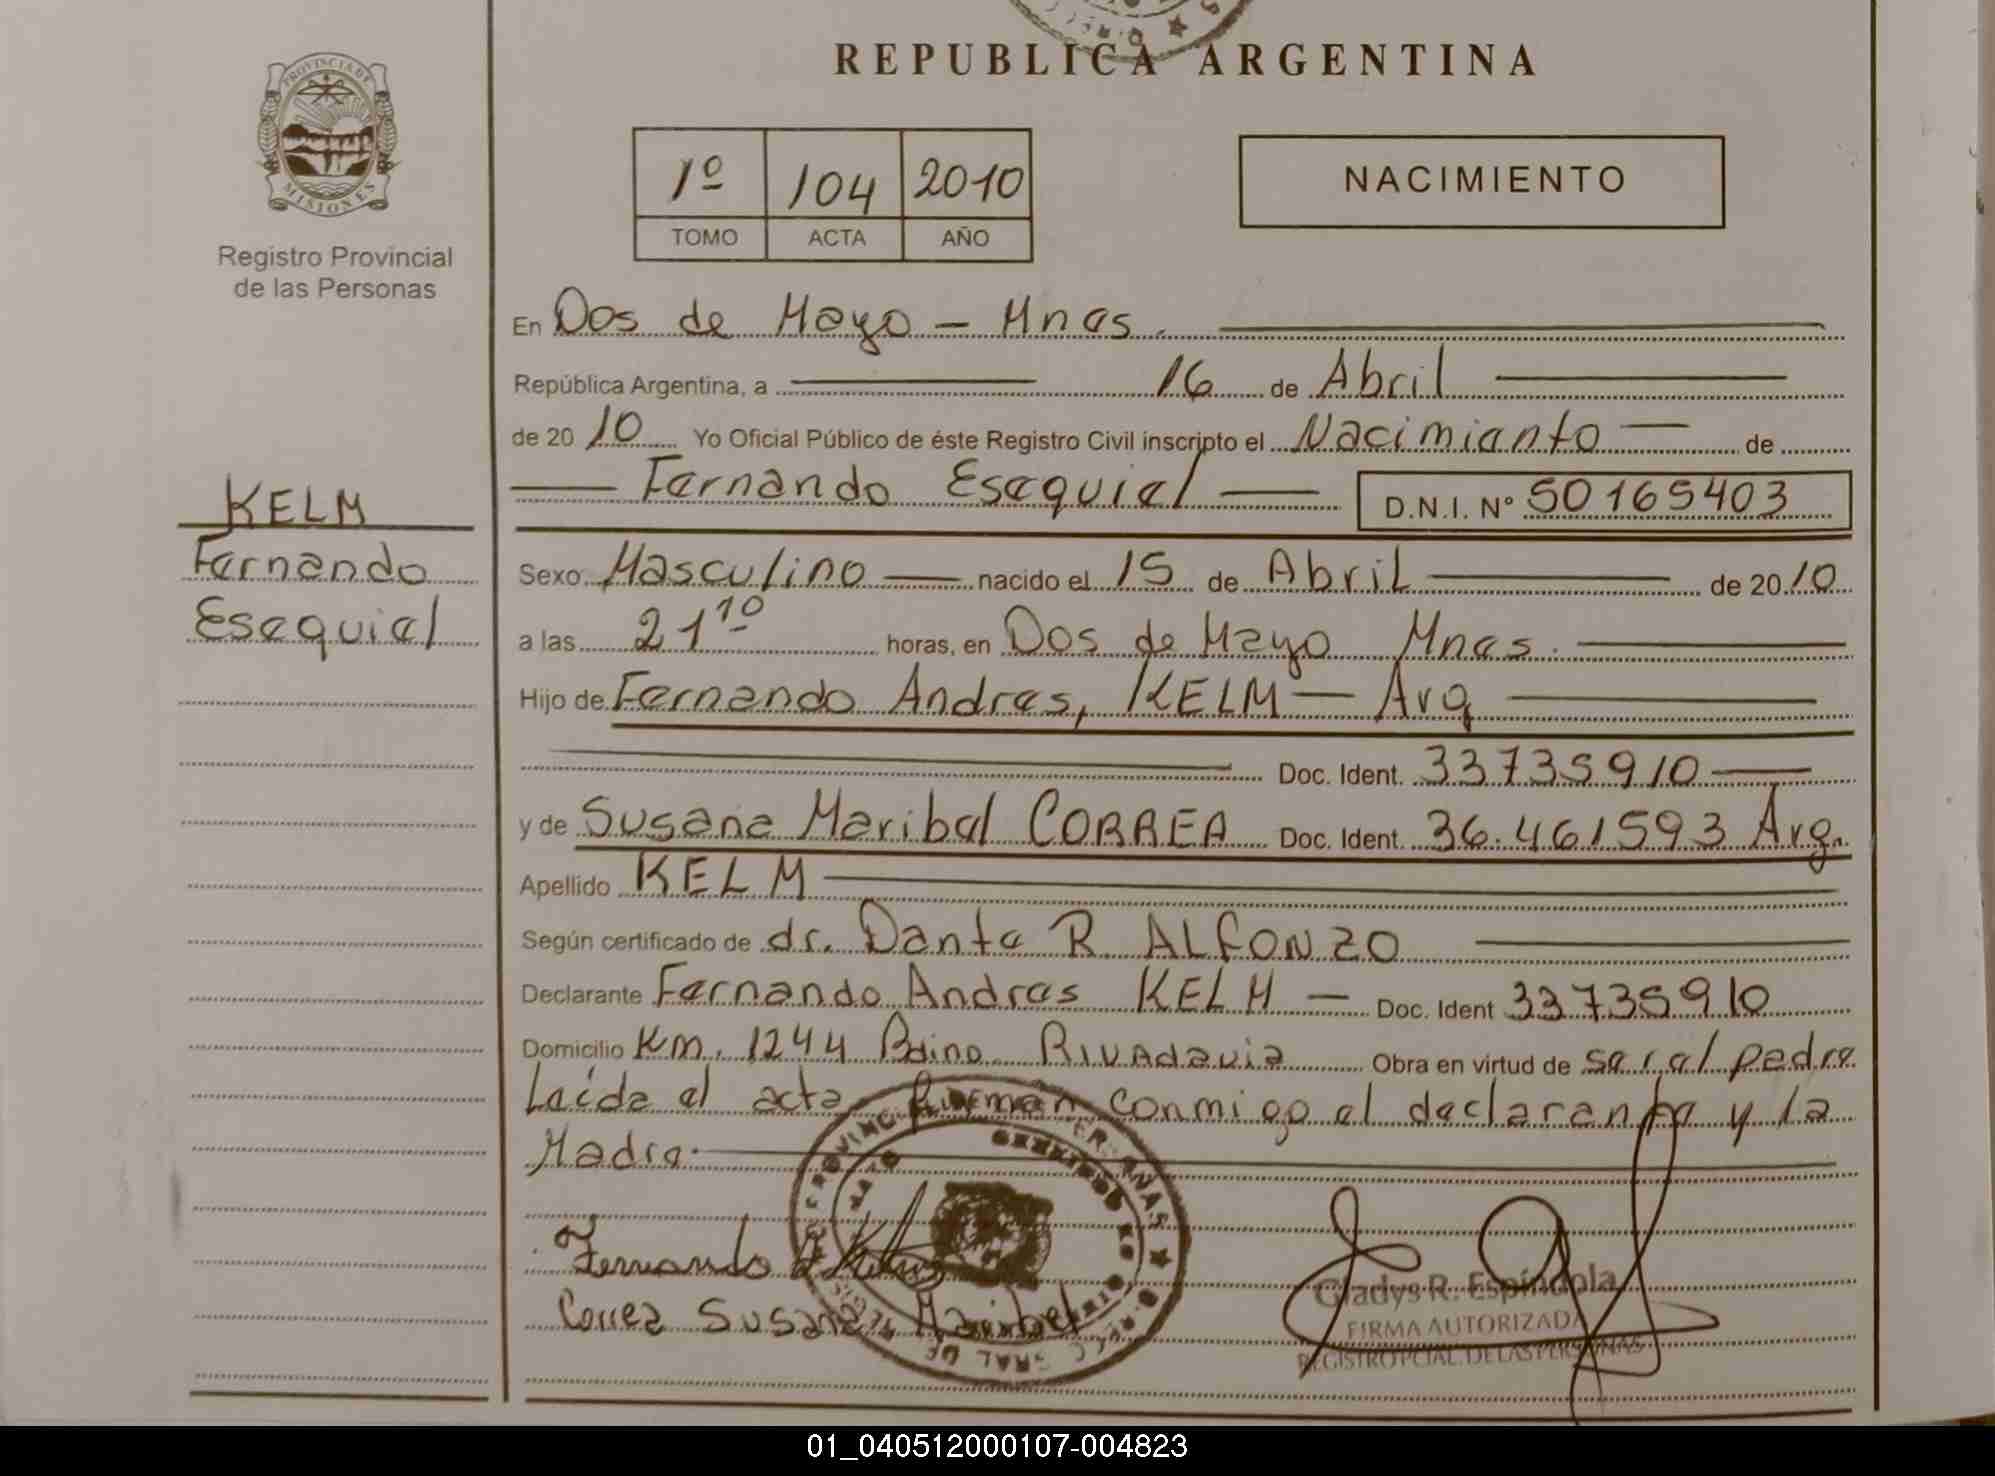 REPUBLICA ARGENTINA
PROVINCIA DE
MISIONES
Registro Provincial
de las Personas
1º 104 2010
TOMO ACTA AÑO
NACIMIENTO
En Dos de Mayo - Mnes.
República Argentina, a 16 de Abril
de 2010 Yo Oficial Público de éste Registro Civil inscripto el Nacimiento de
Fernando Esequiel D.N.I. Nº 50165403
KELM
Fernando
Esequiel
Sexo Masculino nacido el 15 de Abril de 2010
a las 21 10 horas, en Dos de Mayo Mnes.
Hijo de Fernando Andres, KELM - Arg
Doc. Ident. 33735910
y de Susana Maribel CORREA Doc. Ident. 36.461593 Arg.
Apellido KELM
Según certificado de dr. Dante R ALFONZO
Declarante Fernando Andres KELM - Doc. Ident 33735910
Domicilio Km. 1244 Bdino. Rivadavia Obra en virtud de ser el padre
Leída el acta firman conmigo el declarante y la
Madre.
Fernando A
Correa Susana Maribel
Gladys R. Espíndola
FIRMA AUTORIZADA
REGISTRO PCIAL. DE LAS PERSONAS
01_040512000107-004823